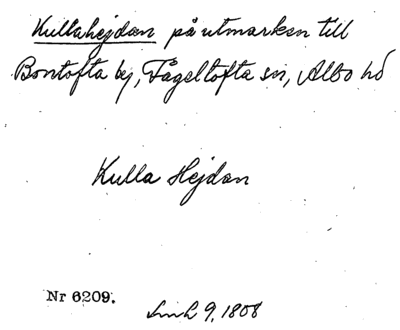 Kullahejdan på utmarken till
Bontofta by, Fågeltofta sn, Albo hd
Kulla Hejdan
Nr 6209.
9, 1808